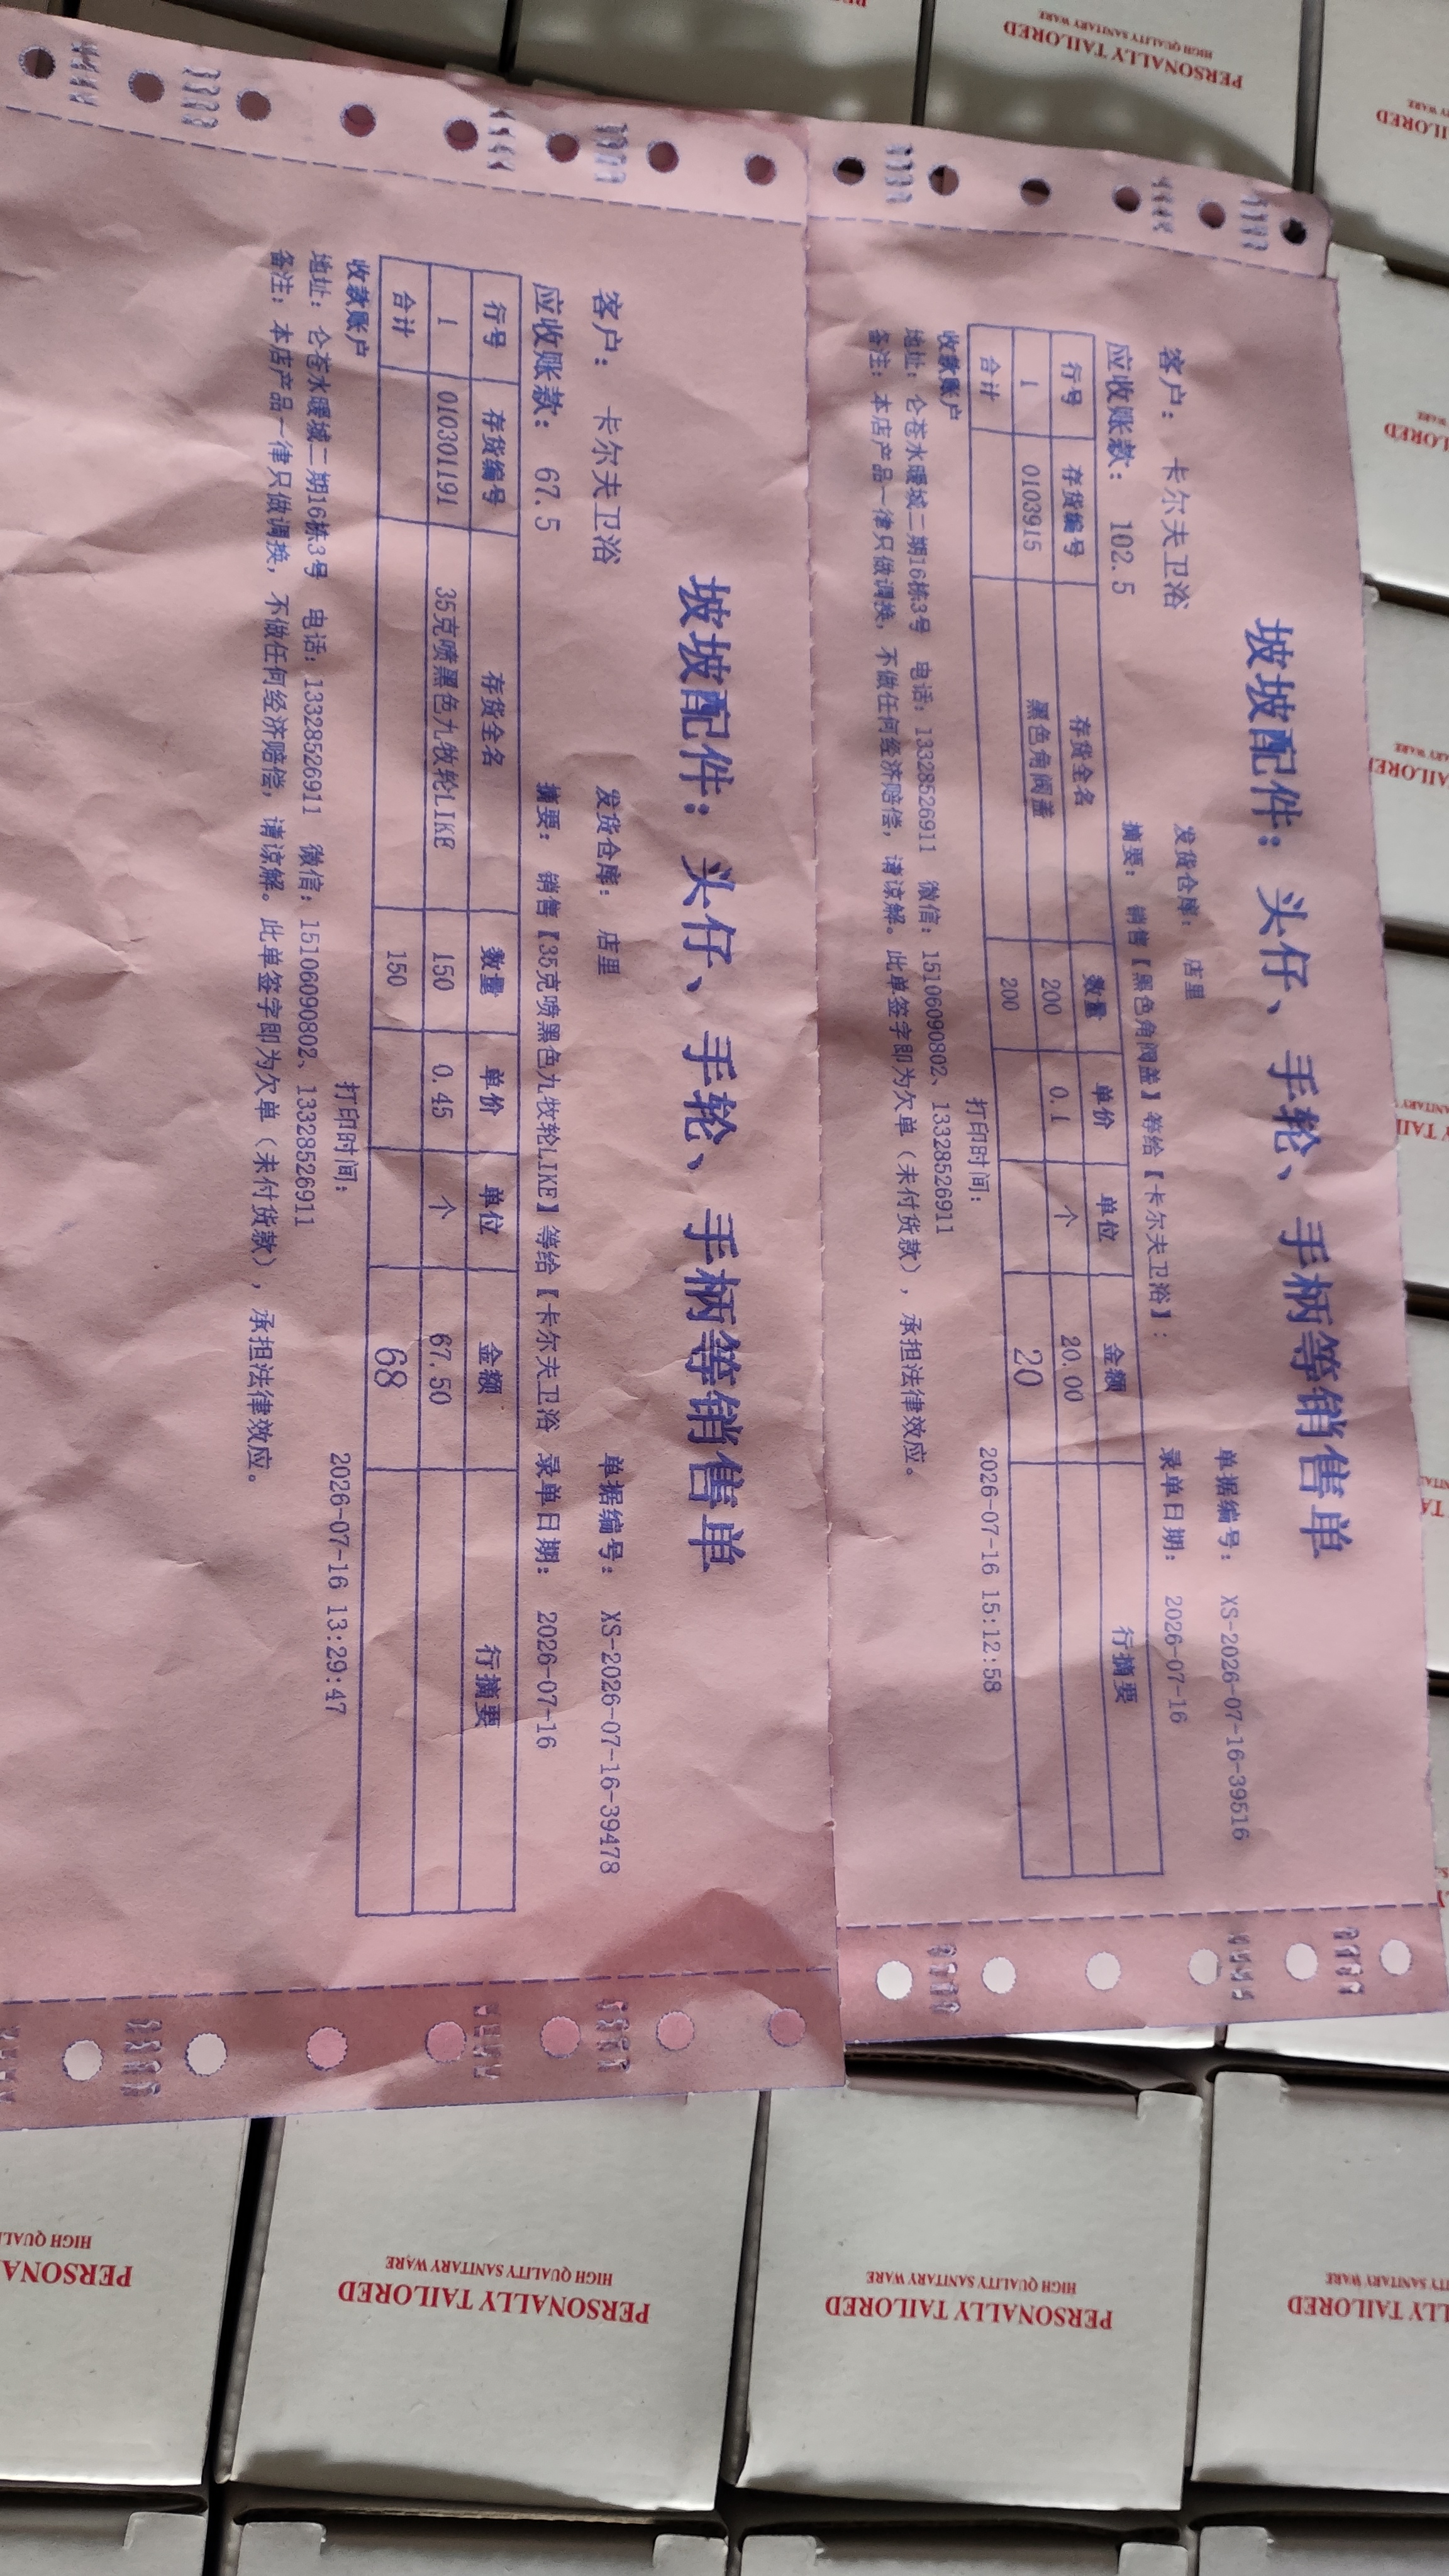 坡坡配件：头仔、手轮、手柄等销售单
客户： 卡尔夫卫浴 发货仓库： 店里 单据编号： XS-2026-07-16-39516
应收账款： 102.5 摘要： 销售【黑色角阀盖】等给【卡尔夫卫浴】： 录单日期： 2026-07-16
行号 存货编号 存货全名 数量 单价 单位 金额 行摘要
1 0103915 黑色角阀盖 200 0.1 个 20.00
合计 200 20
收款账户 打印时间： 2026-07-16 15:12:58
地址：仑苍水暖城二期16栋3号 电话：13328526911 微信：15106090802、13328526911
备注：本店产品一律只做调换，不做任何经济赔偿，请谅解。此单签字即为欠单（未付货款），承担法律效应。
坡坡配件：头仔、手轮、手柄等销售单
客户： 卡尔夫卫浴 发货仓库： 店里 单据编号： XS-2026-07-16-39478
应收账款： 67.5 摘要： 销售【35克喷黑色九牧轮LIKE】等给【卡尔夫卫浴 录单日期： 2026-07-16
行号 存货编号 存货全名 数量 单价 单位 金额 行摘要
1 010301191 35克喷黑色九牧轮LIKE 150 0.45 个 67.50
合计 150 68
收款账户 打印时间： 2026-07-16 13:29:47
地址：仑苍水暖城二期16栋3号 电话：13328526911 微信：15106090802、13328526911
备注：本店产品一律只做调换，不做任何经济赔偿，请谅解。此单签字即为欠单（未付货款），承担法律效应。
PERSONALLY TAILORED
HIGH QUALITY SANITARY WARE
PERSONALLY TAILORED
HIGH QUALITY SANITARY WARE
PERSONALLY TAILORED
HIGH QUALITY SANITARY WARE